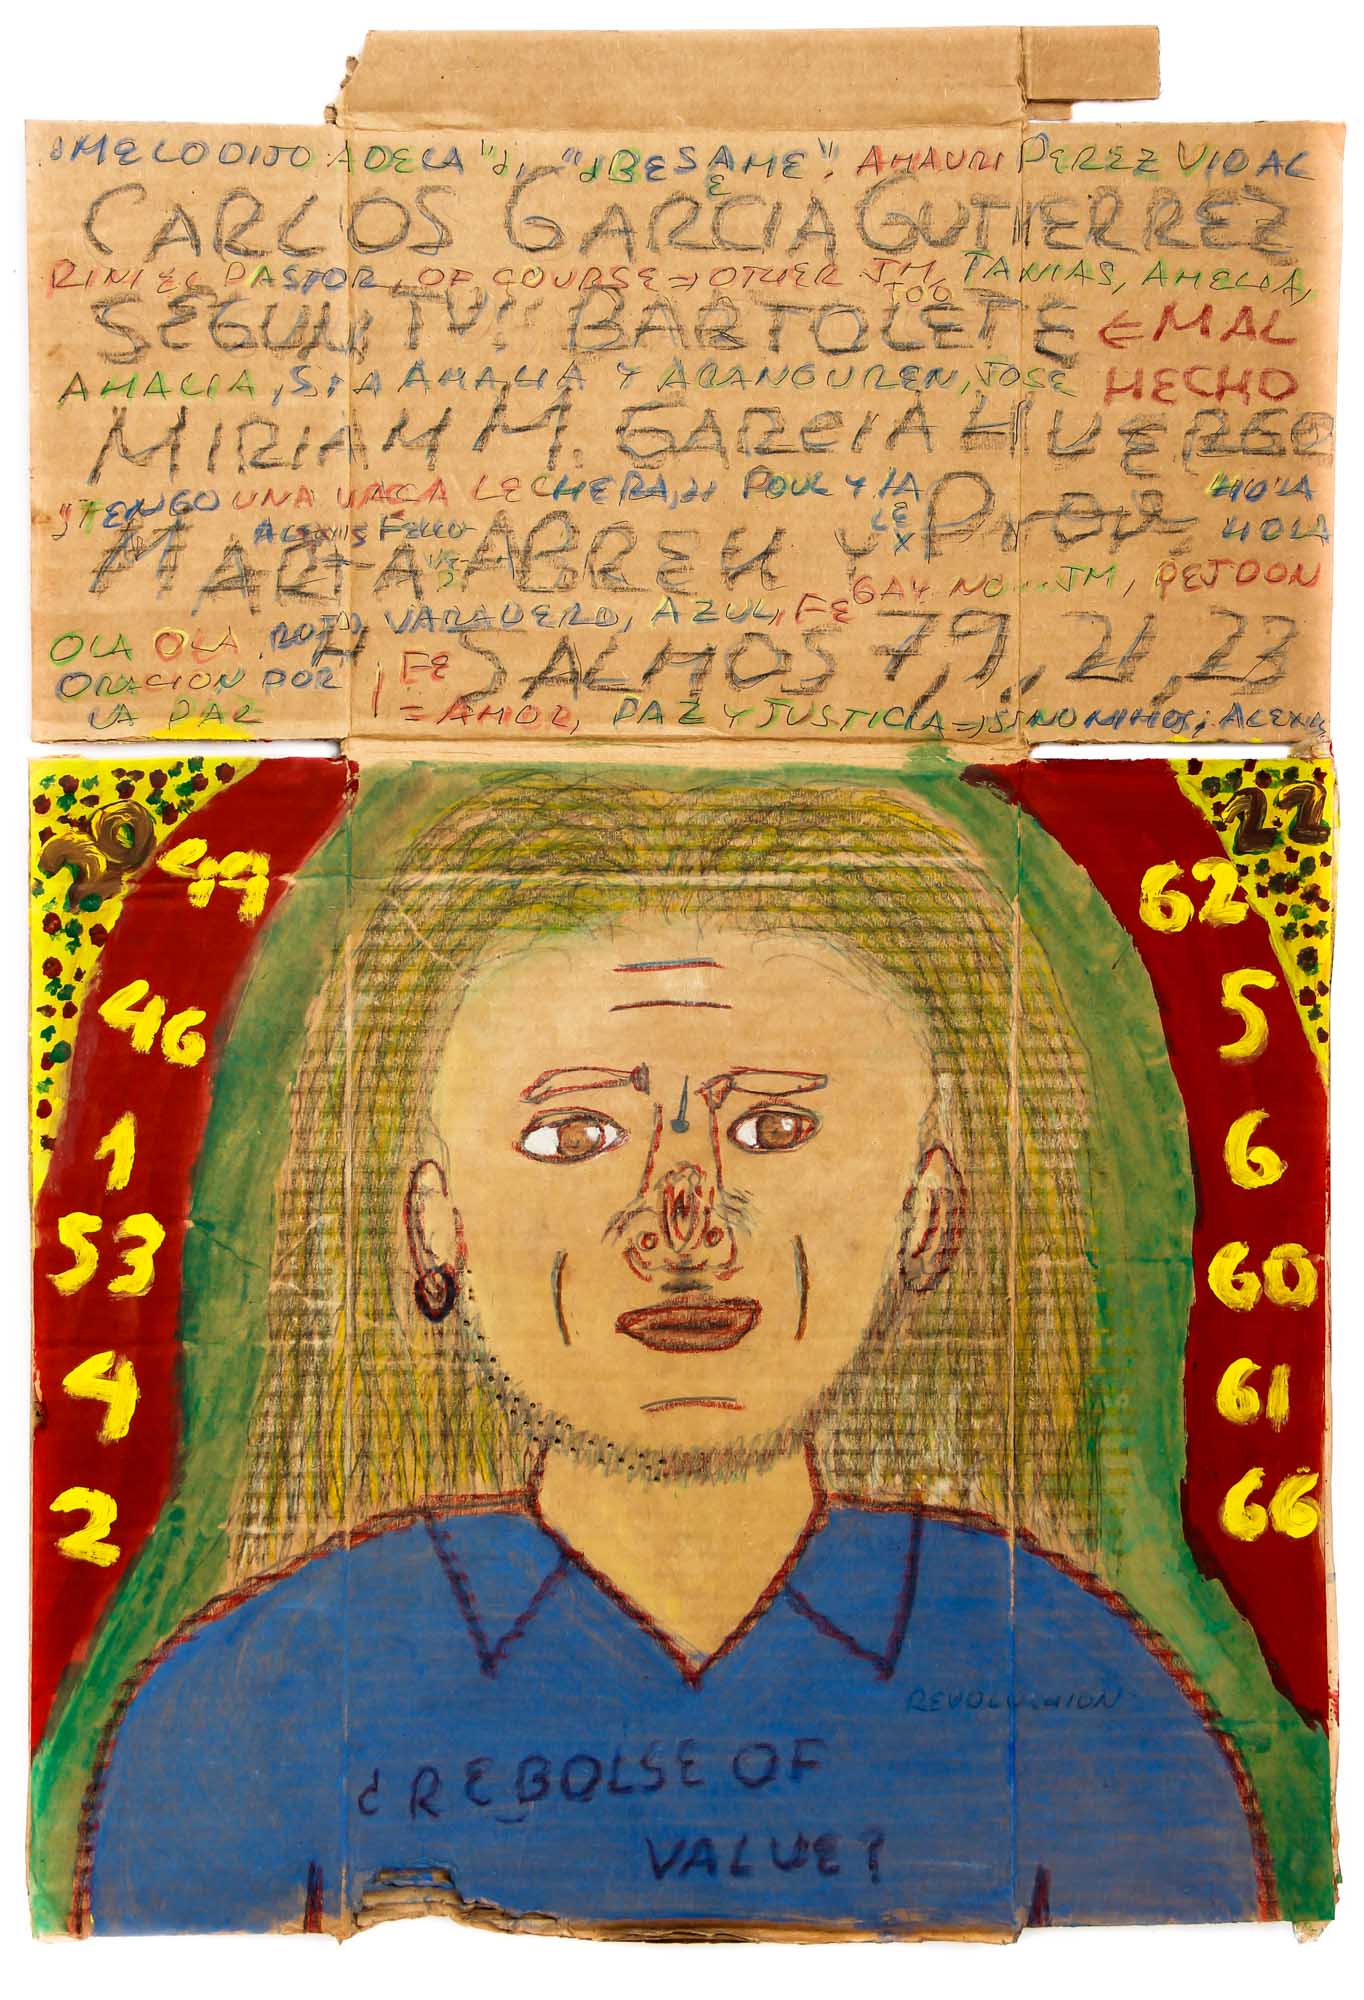 ¡MELODIJO ADELA "¿, "¿BESAME", AMAURI PEREZ VIDAL
CARLOS E GARCIA GUTIERREZ
RINI EL PASTOR, OF COURSE → OTHER JM, TANIAS, AMELIA,
TOO
SEGUN TU!! BARTOLETE ← MAL
AMALIA, STA AMALIA Y ARANGUREN, JOSE HECHO
MIRIAM M. GARCIA HUERGO
"TENGO UNA VACA LECHERA, POUL Y LA HOLA
LEX HOLA
ALEXIS FELLO
MARTA ABREU Y PROV.
GAY NO... JM, PEJDON
OLA OLA, ROJO, VARADERO, AZUL, FE
SALMOS 7, 9, 21, 23
ORACION POR FE
LA PAZ = AMOR, PAZ Y JUSTICIA → SINONIMOS; ALEXIS
20 22
49 62
46 5
1 6
53 60
4 61
2 66
REVOLUCION
¿REBOLSE OF
VALUE?